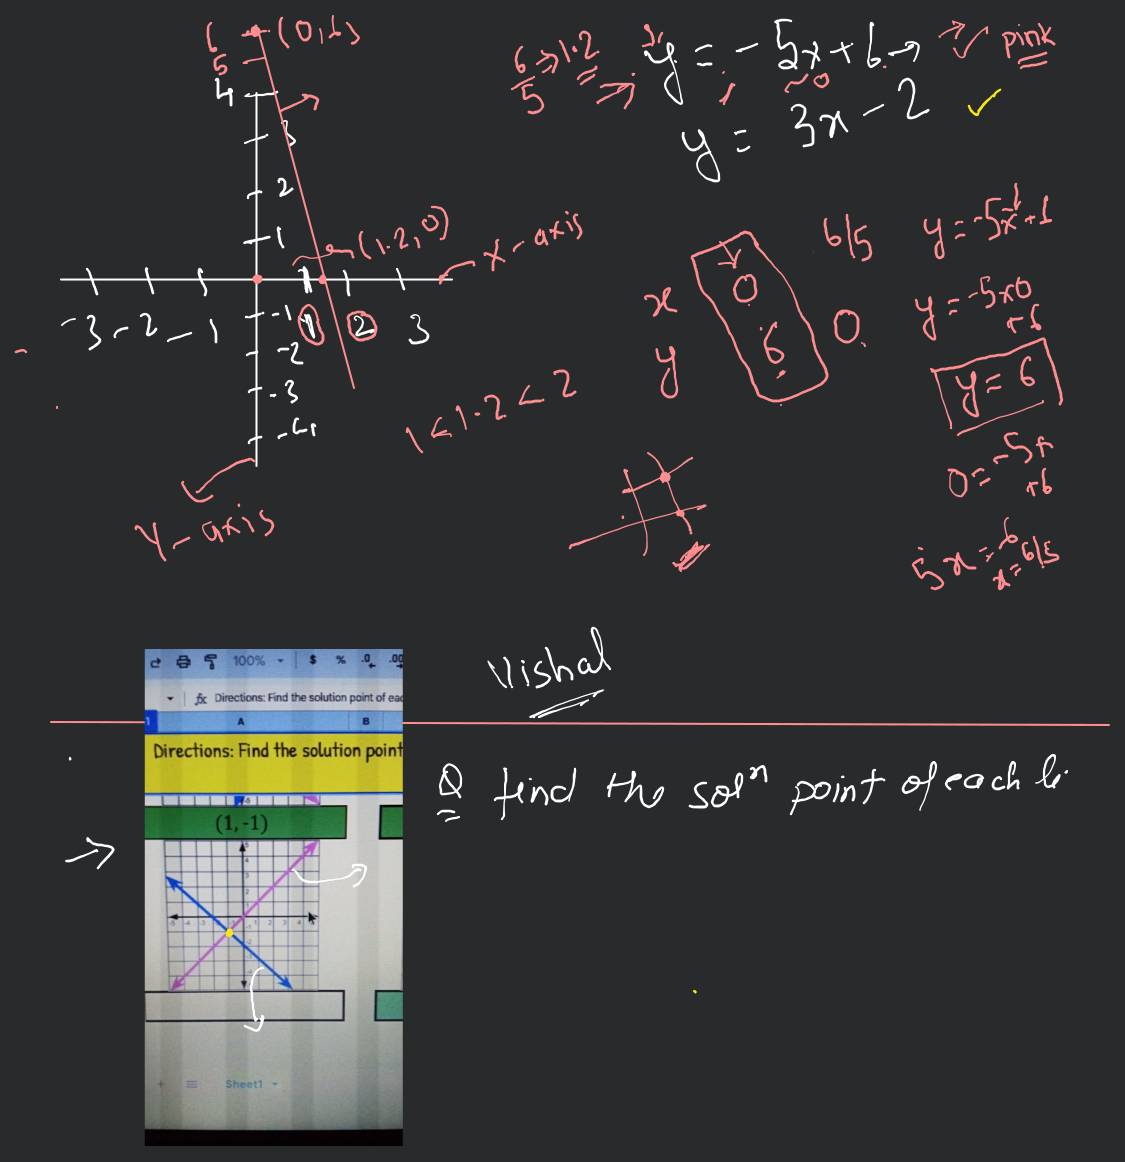 6 (0,6)
5
4
3
2
1
(1.2, 0)
x-axis
-3 -2 -1 1 2 3
-1
-2
-3
-4
y-axis
1 < 1.2 < 2
6/5 → 1.2
y = -5x + 6 → pink
y = 3x - 2
x 0 6/5
y 6 0
y = -5x + 1
y = -5x0 +6
y = 6
0 = -5x +6
5x = 6
x = 6/5
Vishal
100% $ % .0 .00
fx Directions: Find the solution point of eac
1 A B
Directions: Find the solution point
(1,-1)
Sheet1
Q find the solⁿ point of each li